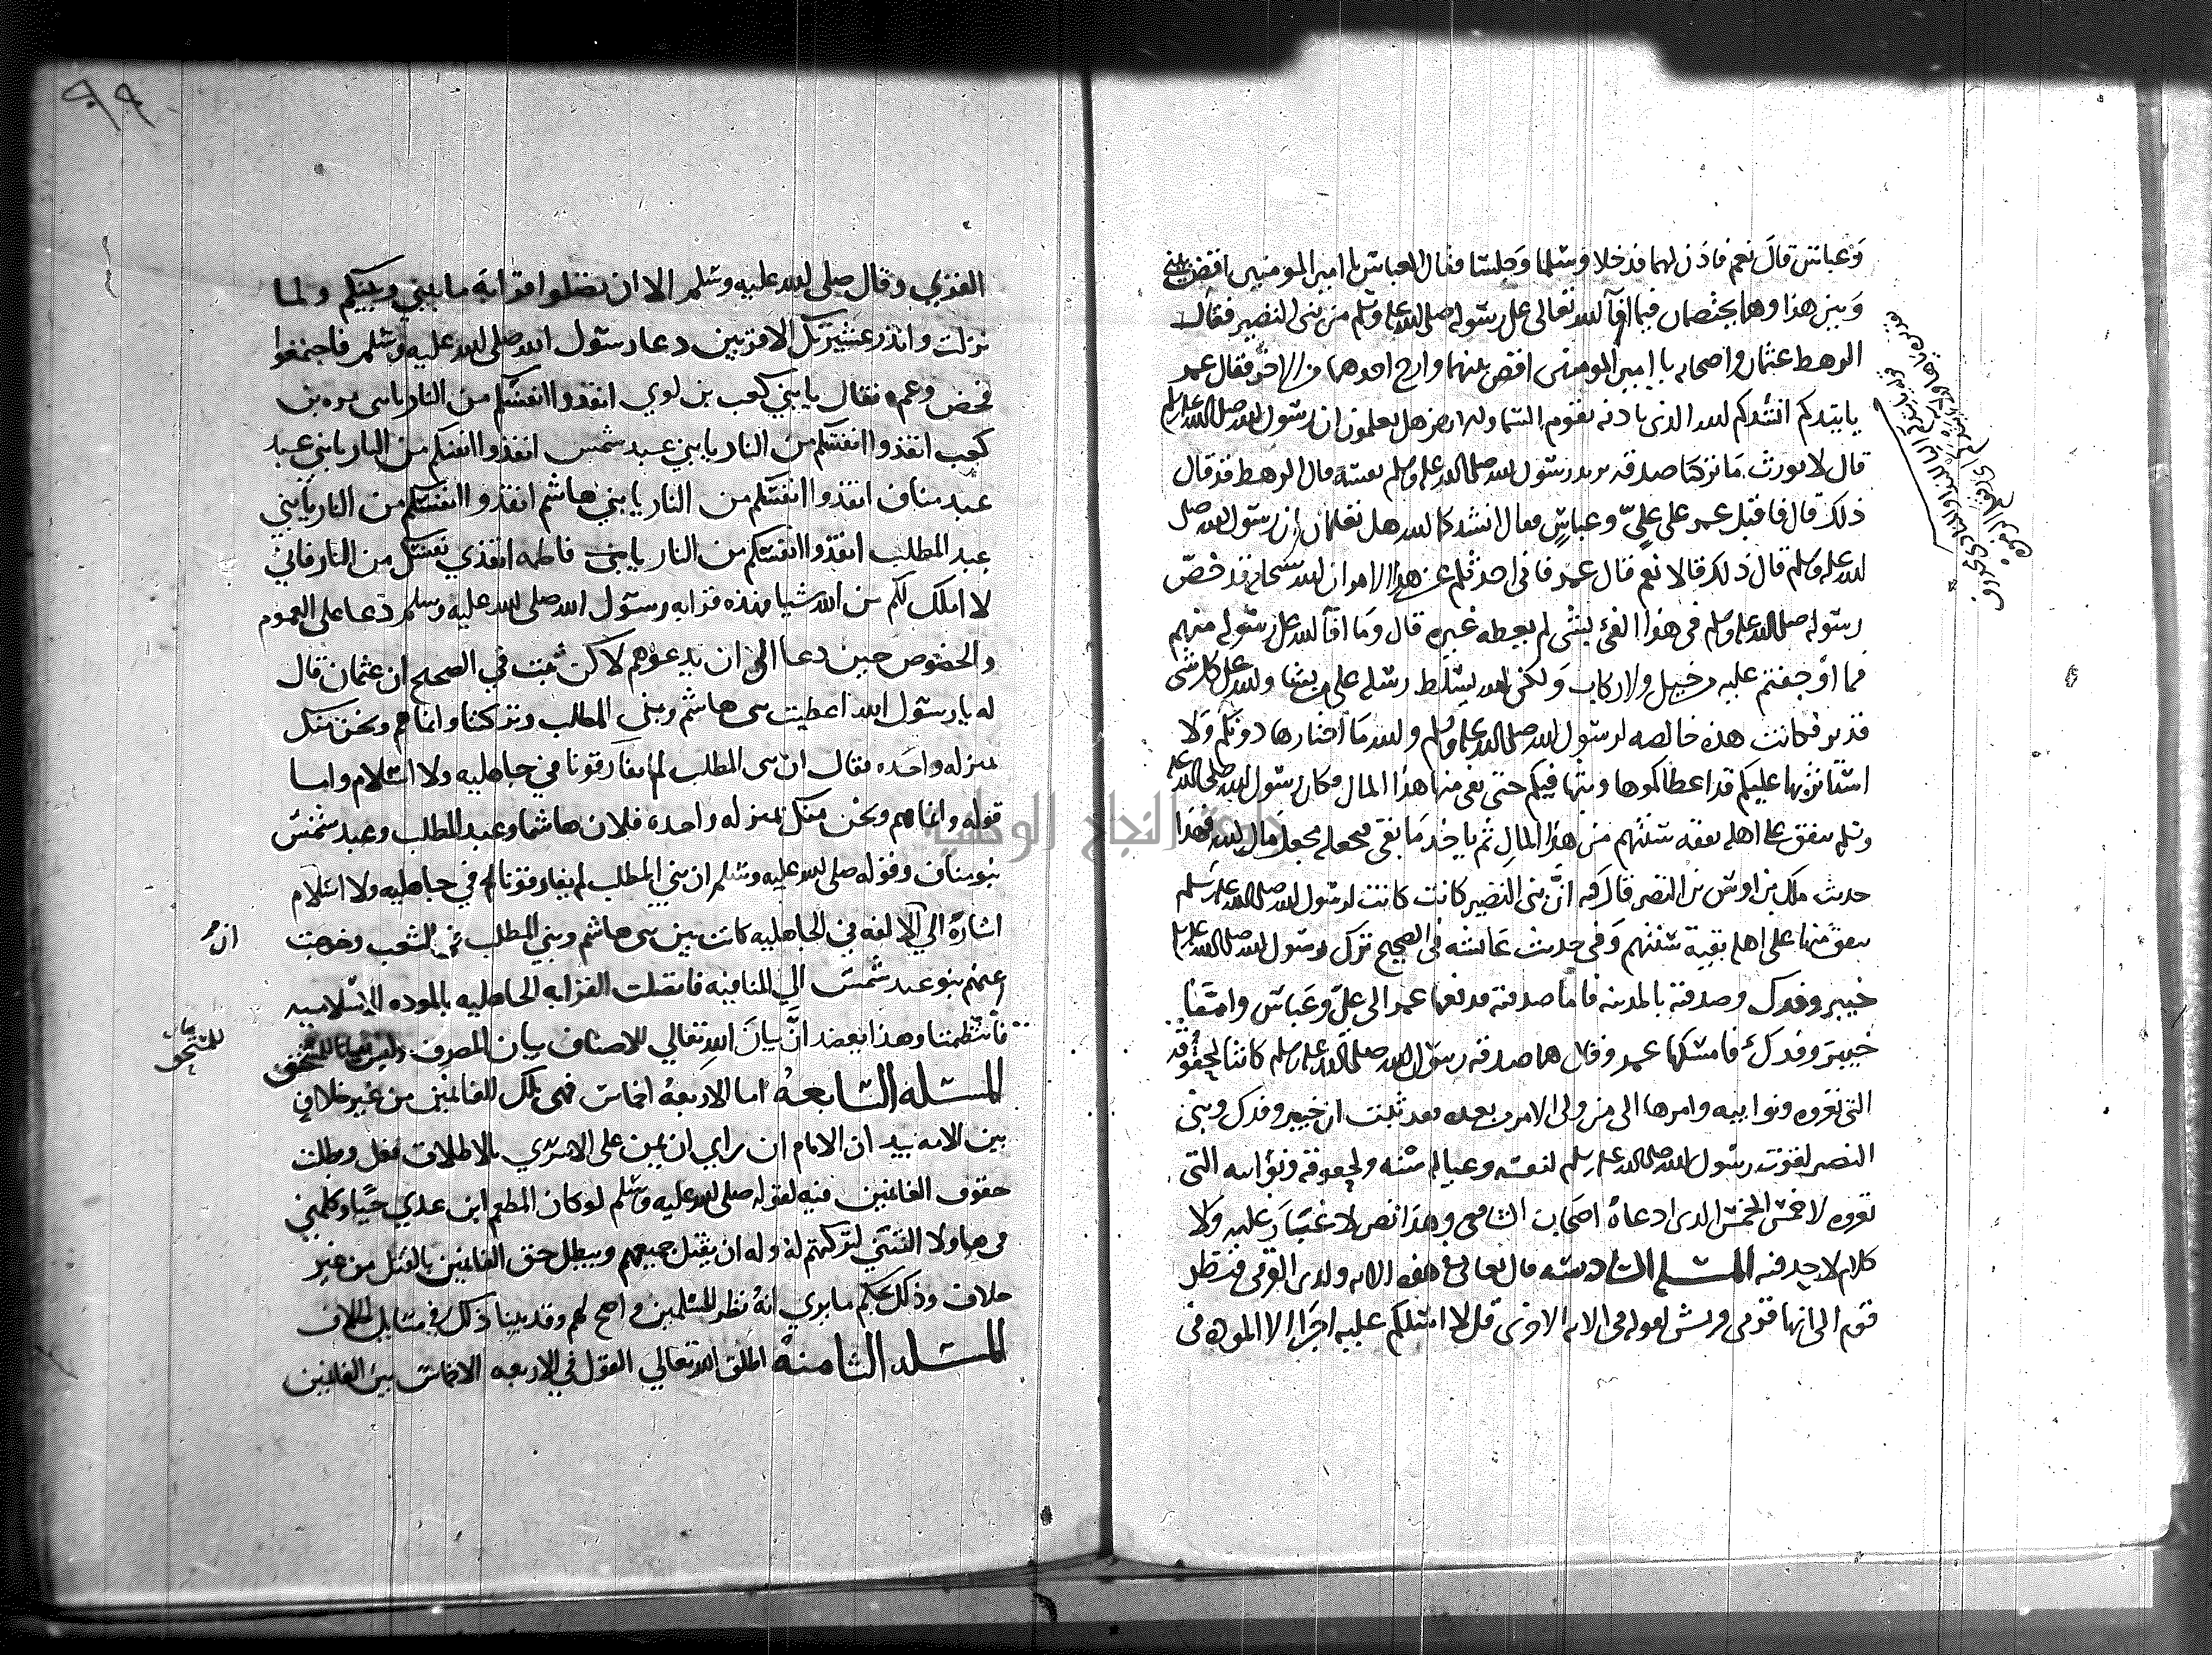 وعباس قال نعم فاذن لهما فدخلا وسلما وجلسا فقال العباس يا امير المومنين اقض بيني
وبين هذا وهما يختصمان فيما افآ الله تعالى على رسوله صلى الله عليه وسلم من بنى النضير فقال
الرهط عثمان واصحابه يا امير المومنين اقض بينهما وارح احدهما من الاخر فقال عمر
يا يتدكم انشدكم لله الذى باذنه تقوم السما والارض هل تعلمون ان رسول الله صلى الله عليه وسلم
قال لا نورث ما تركنا صدقه يريد رسول الله صلى الله عليه وسلم نفسه قال الرهط قد قال
ذلك قال فاقبل عمر على عليّ وعباسٍ فقال انشدكما لله هل تعلمان ان رسول الله صلى
الله عليه وسلم قال ذلك قالا نعم قال عمر فانى احدثكم عن هذا الامر ان الله سبحانه قد خصّ
رسوله صلى الله عليه وسلم فى هذا الفئ بشى لم يعطه غيره قال وما افآ الله على رسوله منهم
فما اوجفتم عليه من خيل ولا ركاب ولكن الله يسلط رسله على من يشا والله على كل شى
قدير فكانت هذه خالصه لرسول الله صلى الله عليه وسلم والله ما اختارها دونكم ولا
استاثر بها عليكم قد اعطاكموها وبثها فيكم حتى بقى منها هذا المال فكان رسول الله صلى الله عليه
وسلم ينفق على اهله نفقه سنتهم من هذا المال ثم ياخذ ما بقى فيجعله مجعل مال الله فهذا
حديث ملك بن اوس بن النضر قال فيه انّ بنى النضير كانت كانت لرسول الله صلى الله عليه وسلم
ينفق منها على اهله بقية سنتهم وفى حديث عائشه فى الصحيح ترك رسول الله صلى الله عليه وسلم
خيبر وفدك وصدقته بالمدينه فاما صدقته فدفعها عمر الى عليّ وعباس وامتعا
خيبر وفدك فامسكها عمر وقال هما صدقه رسول الله صلى الله عليه وسلم كانتا لحقوقه
التى تعروه ونوايبه وامرها الى من ولى الامر بعده فقد ثبت ان خيبر وفدك وبنى
النضير لقوت رسول الله صلى الله عليه وسلم لنفسه وعياله سنه ولحقوقه ونوايبه التى
تعروه لا خمس الخمس الذى ادعاه اصحاب الشافعى وهذا نص لا غبار عليه ولا
كلام لاحد فيه المسله السادسه قال تعالى فى هذه الايه ولذى القربى فنظر
قوم الى انها قربى قريش لقوله فى الايه الاخرى قل لا اسئلكم عليه اجرا الا الموده فى
٩٩
القربي وقال صلى الله عليه وسلم الا ان تصلوا قرابه ما بيني وبينكم ولما
نزلت وانذر عشيرتك الاقربين دعا رسول الله صلى الله عليه وسلم فاجتمعوا
فخص وعم فقال يا بني كعب بن لوي انقذوا انفسكم من النار يا بنى مره بن
كعب انقذوا انفسكم من النار يا بني عبد شمس انقذوا انفسكم من النار يا بني عبد
عبد مناف انقذوا انفسكم من النار يا بني هاشم انقذوا انفسكم من النار يا بني
عبد المطلب انقذوا انفسكم من النار يا بني فاطمه انقذي نفسك من النار فاني
لا املك لكم من الله شيا فهذه قرابه رسول الله صلى الله عليه وسلم دعا على العموم
والخصوص حين دعا الى ان يدعوهم لاكن ثبت في الصحيح ان عثمان قال
له يا رسول الله اعطيت بنى هاشم وبني المطلب وتركتنا وانما هم ونحن منك
بمنزله واحده فقال ان بنى المطلب لم يفارقونا في جاهليه ولا اسلام واما
قوله وانما هم ونحن منك بمنزله واحده فلان هاشما وعبد المطلب وعبد شمس
بنو مناف وقوله صلى الله عليه وسلم ان بني المطلب لم يفارقونا فى جاهليه ولا اسلام
اشارة الي الالفه في الجاهليه كانت بين بنى هاشم وبني المطلب في الشعب وخرجت
عنهم بنو عبد شمس الي المنافيه فاتصلت القرابه الجاهليه بالموده الاسلاميه
فانتظمتا وهذا يعضد انّ بيان الله تعالي للاصناف بيان المصرف وليس بيانا للمستحق
المسله السابعة اما الاربعة اخماس فهى ملك للغانمين من غير خلاف
بين الامه بيد ان الامام ان راي ان يمن على الاسرى بالاطلاق فعل وبطلت
حقوق الغانمين فيه لقوله صلى الله عليه وسلم لو كان المطعم ابن عدي حيّا وكلمني
فى هاولا النتنى لتركتهم له وله ان يقتل جميعهم ويبطل حق الغانمين بالقتل من غير
خلاف وذلك بحكم ما يري انه نظر للمسلمين واصح لهم وقد بينا ذلك فى مسايل الخلاف
المسله الثامنه اطلق الله تعالي القول في الاربعه الاخماس بين الغانمين
للمستحق
جامعة النجاح الوطنية